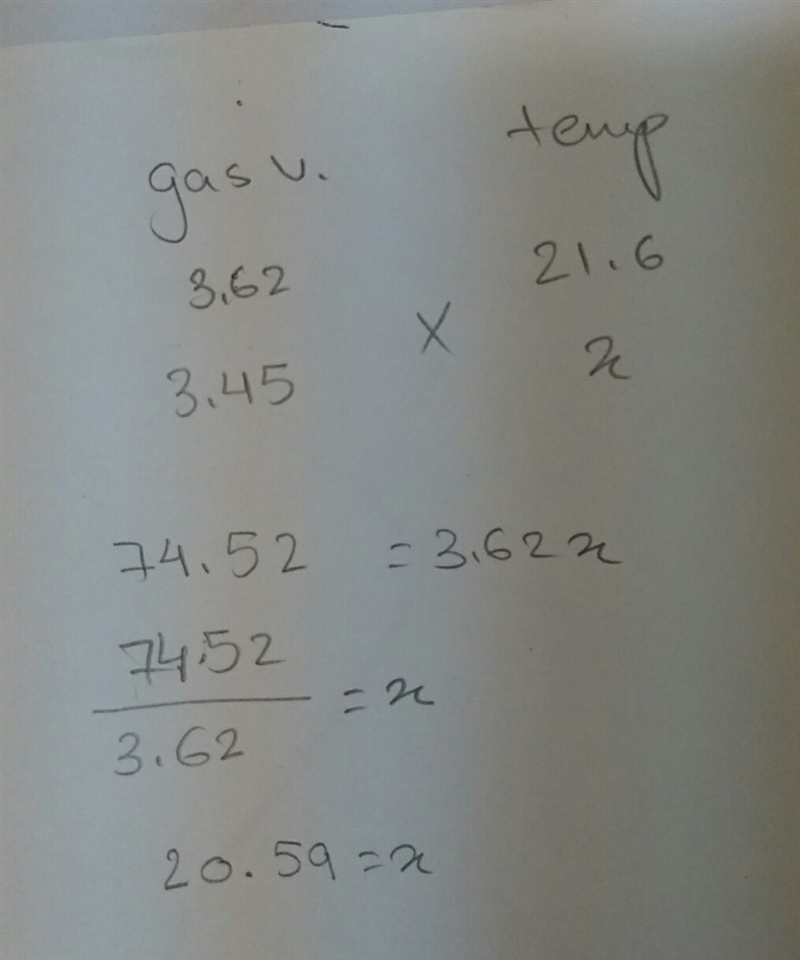 gas v. temp
3.62 21.6
X
3.45 x
74.52 = 3.62x
74.52
3.62
= x
20.59 = x